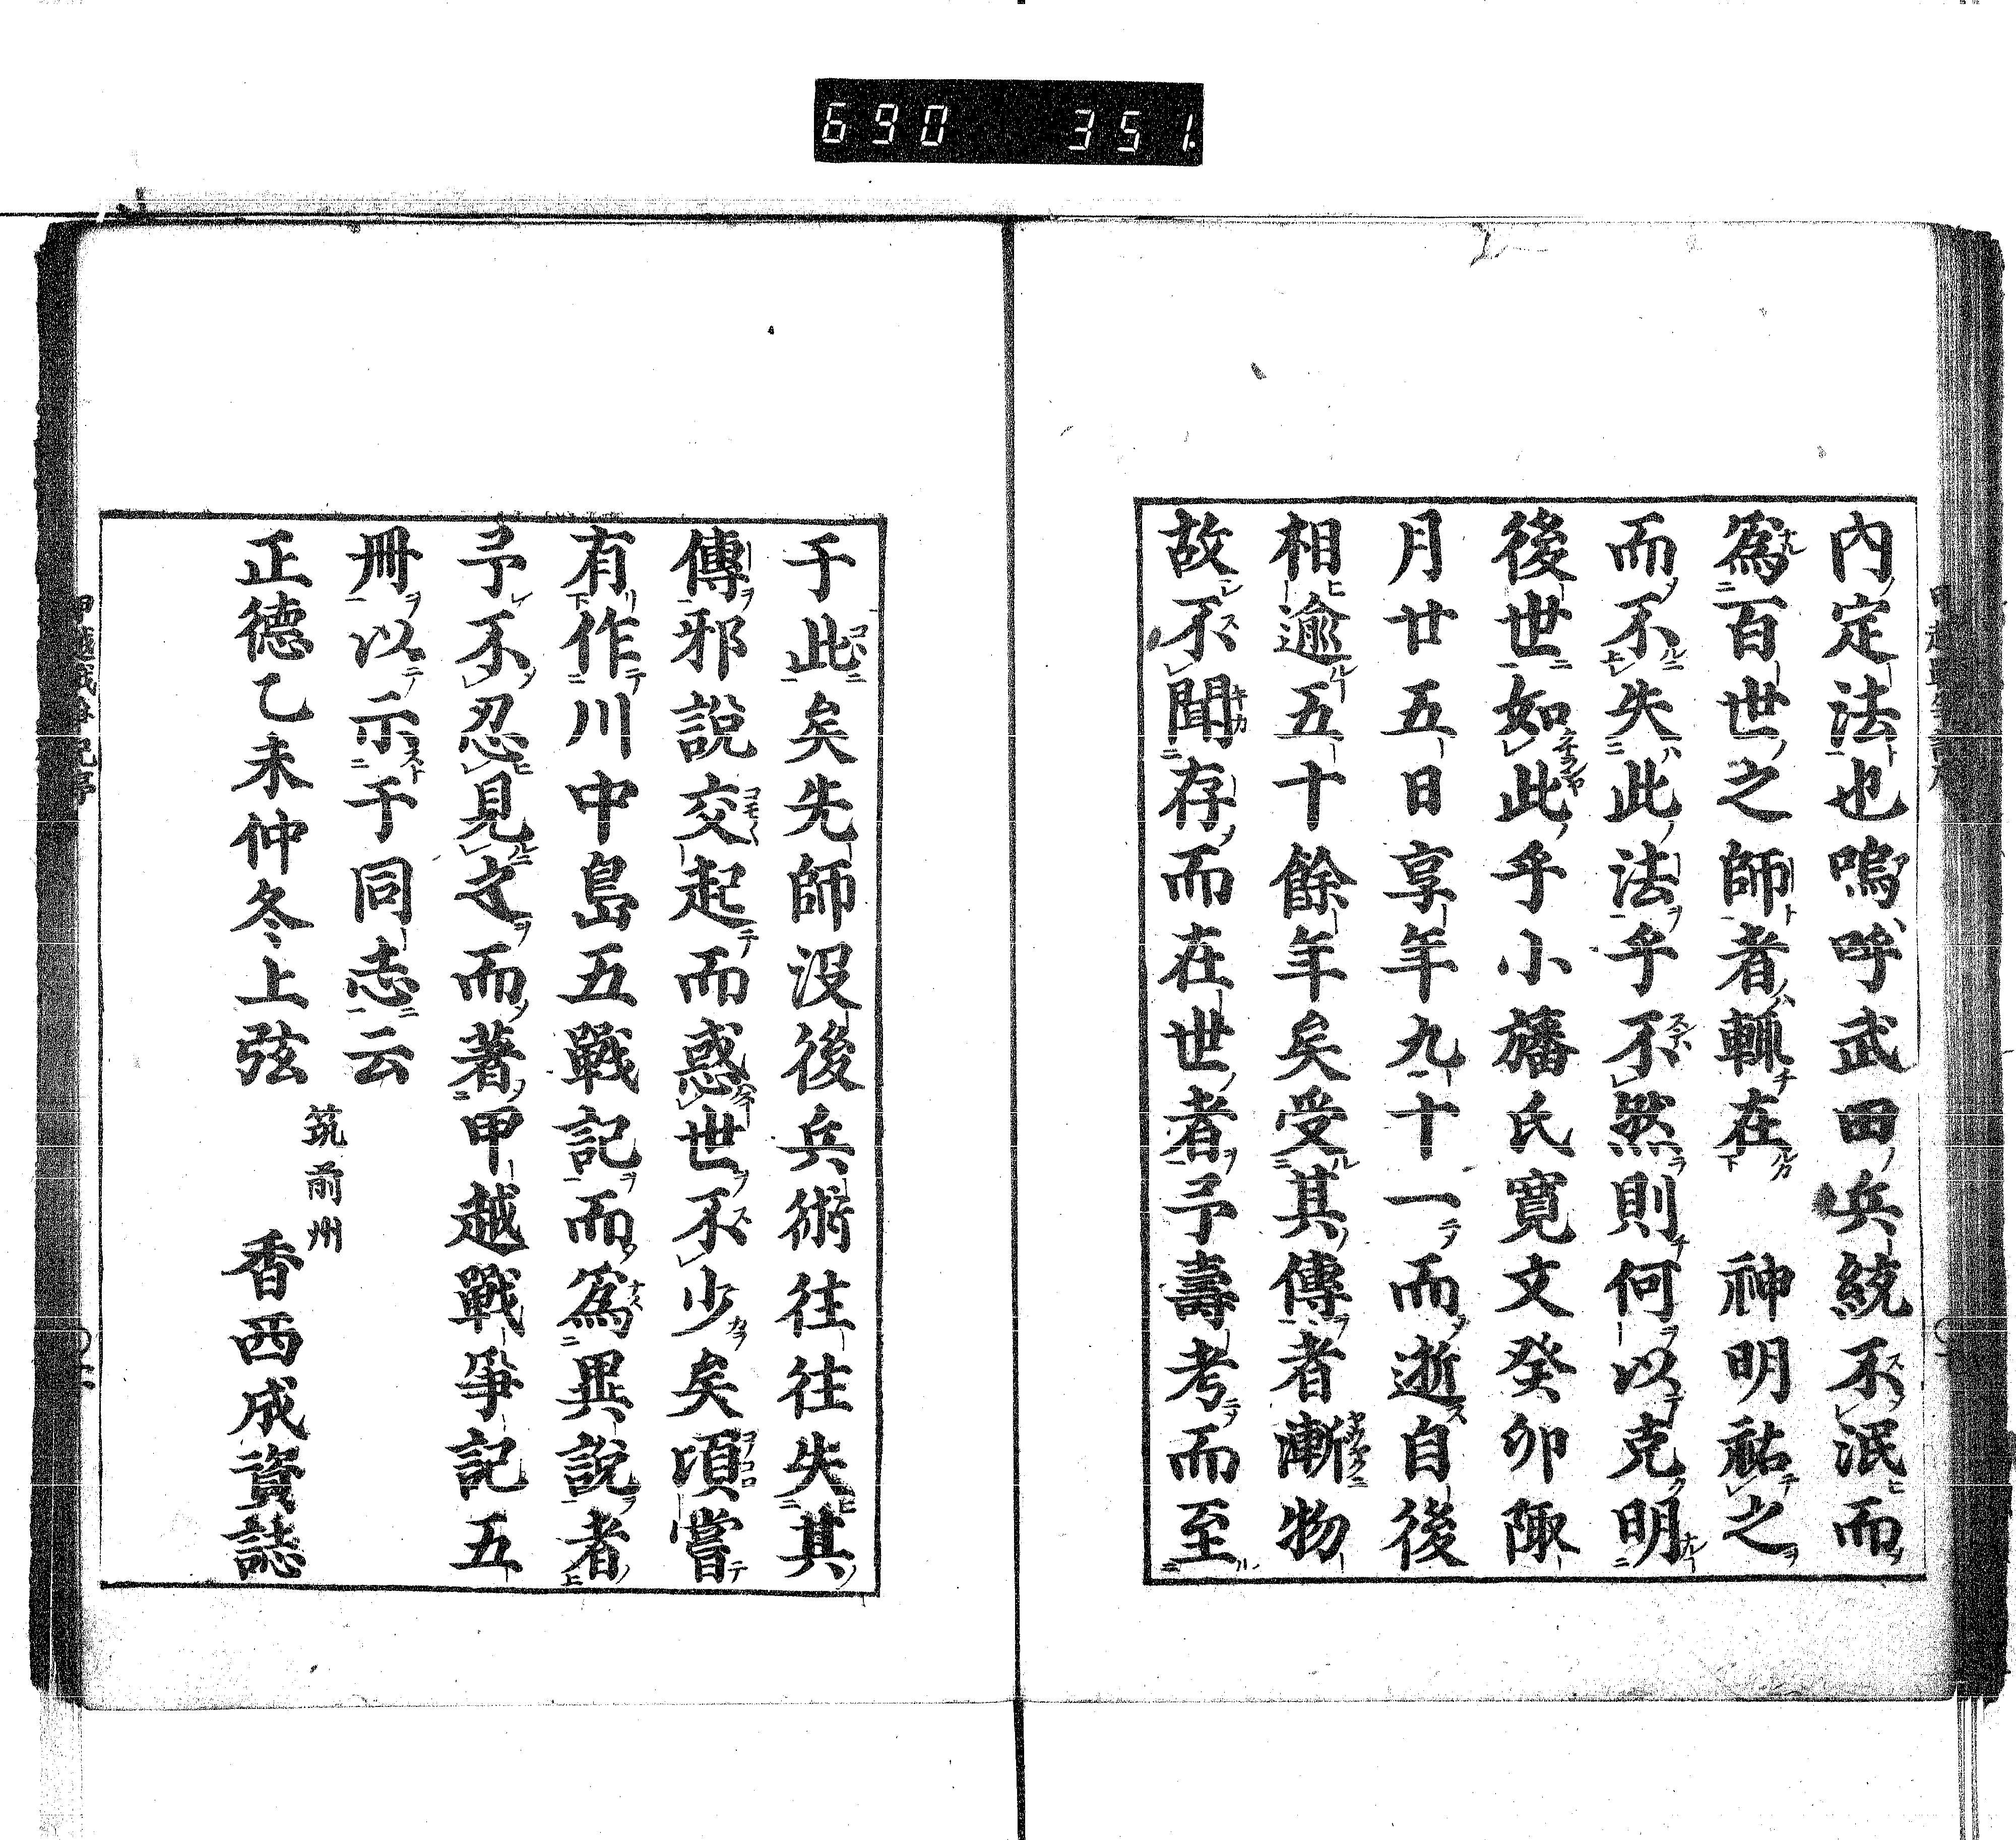 690 351.
內定法也嗚呼武田兵統不泯而
爲百世之師者輒在 神明祐之
而不失此法乎不然則何以克明
後世如此乎小旛氏寛文癸卯陬
月廿五日享年九十一而逝自後
相逾五十餘年矣受其傳者漸物
故不聞存而在世者予壽考而至
于此矣先師沒後兵術往往失其
傳邪說交起而惑世不少矣項嘗
有作川中島五戰記而爲異說者
予不忍見文而著甲越戰爭記五
冊以示于同志云
正德乙未仲冬上弦
筑前州
香西成資誌